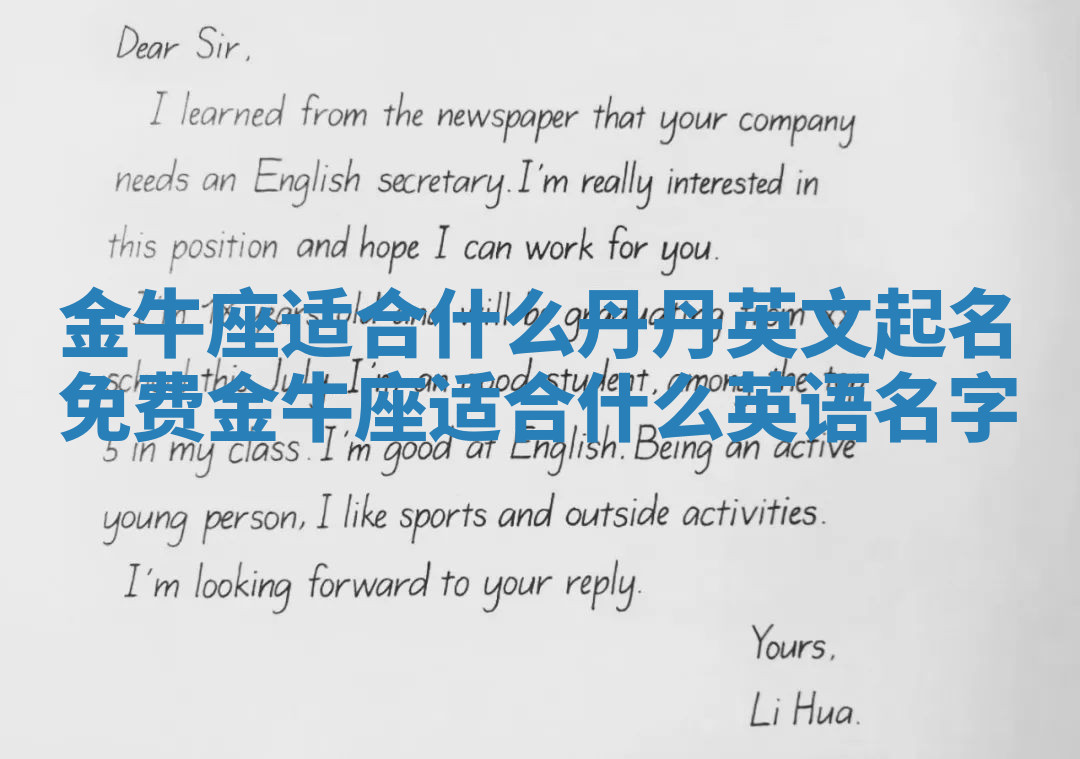 Dear Sir,
I learned from the newspaper that your company
needs an English secretary. I'm really interested in
this position and hope I can work for you.
金牛座适合什么丹丹英文起名
I'm years old and will be graduating from
免费金牛座适合什么英语名字
school this July. I'm an good student, among the top
5 in my class. I'm good at English. Being an active
young person, I like sports and outside activities.
I'm looking forward to your reply.
Yours,
Li Hua.